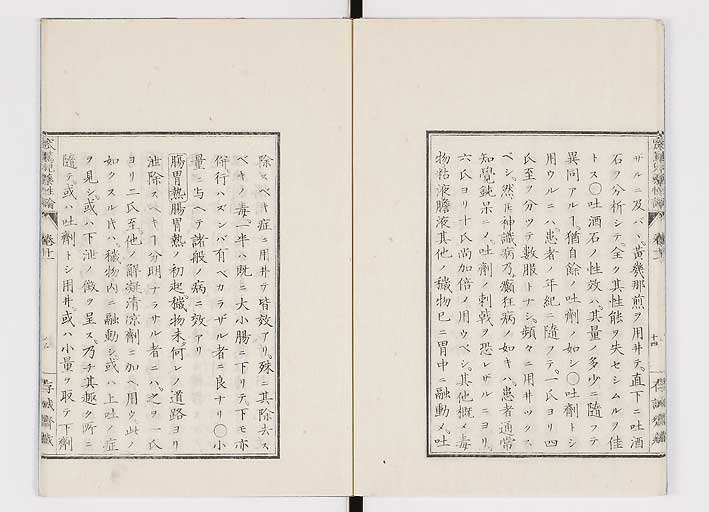 ザルニ及バヽ、黄幾那煎ヲ用井テ、直下ニ吐酒
石ヲ分析シテ、全ク其性能ヲ失セシムルヲ佳
トス〇吐酒石ノ性效ハ、其量ノ多少ニ隨フテ
異同アルヿ、猶自餘ノ吐劑ノ如シ〇吐劑トシ
用ウルニハ、患者ノ年紀ニ隨フテ、一氏ヨリ四
氏至ヲ分ツテ數服トナシ、頻々ニ用井ツクス
ベシ、然𪜈神識病乃癲狂病ノ如キハ、患者通常
知覺鈍呆ニノ、吐劑ノ刺戟ヲ恐レザルニヨリ、
六氏ヨリ十氏尚加倍ノ用ウベシ、其他概メ毒
物粘液膽液其他ノ穢物已ニ胃中ニ融動メ、吐
除スベキ症ニ用井テ皆效アリ、殊ニ其除去ス
ベキノ毒、一半ハ既ニ大小腸ニ下リテ、下モ亦
併行ハズンバ有ベカラザル者ニ良ナリ〇小
量ニ与ヘテ諸般ノ病ニ效アリ
腸胃熱腸胃熱ノ初起、穢物未何レノ道路ヨリ
泄除スベキヿ分明ナラサル者ニハ、之ヲ一氏
ヨリ二氏至他ノ解凝清涼劑ニ加ヘ用ウ、此ノ
如クスル𪜈ハ、穢物内ニ融動シ、或ハ上吐ノ症
ヲ見シ、或ハ下泄ノ徴ヲ呈ス、乃チ其趣ク所ニ
隨テ、或ハ吐劑トシ用井、或ハ小量ヲ取テ下劑